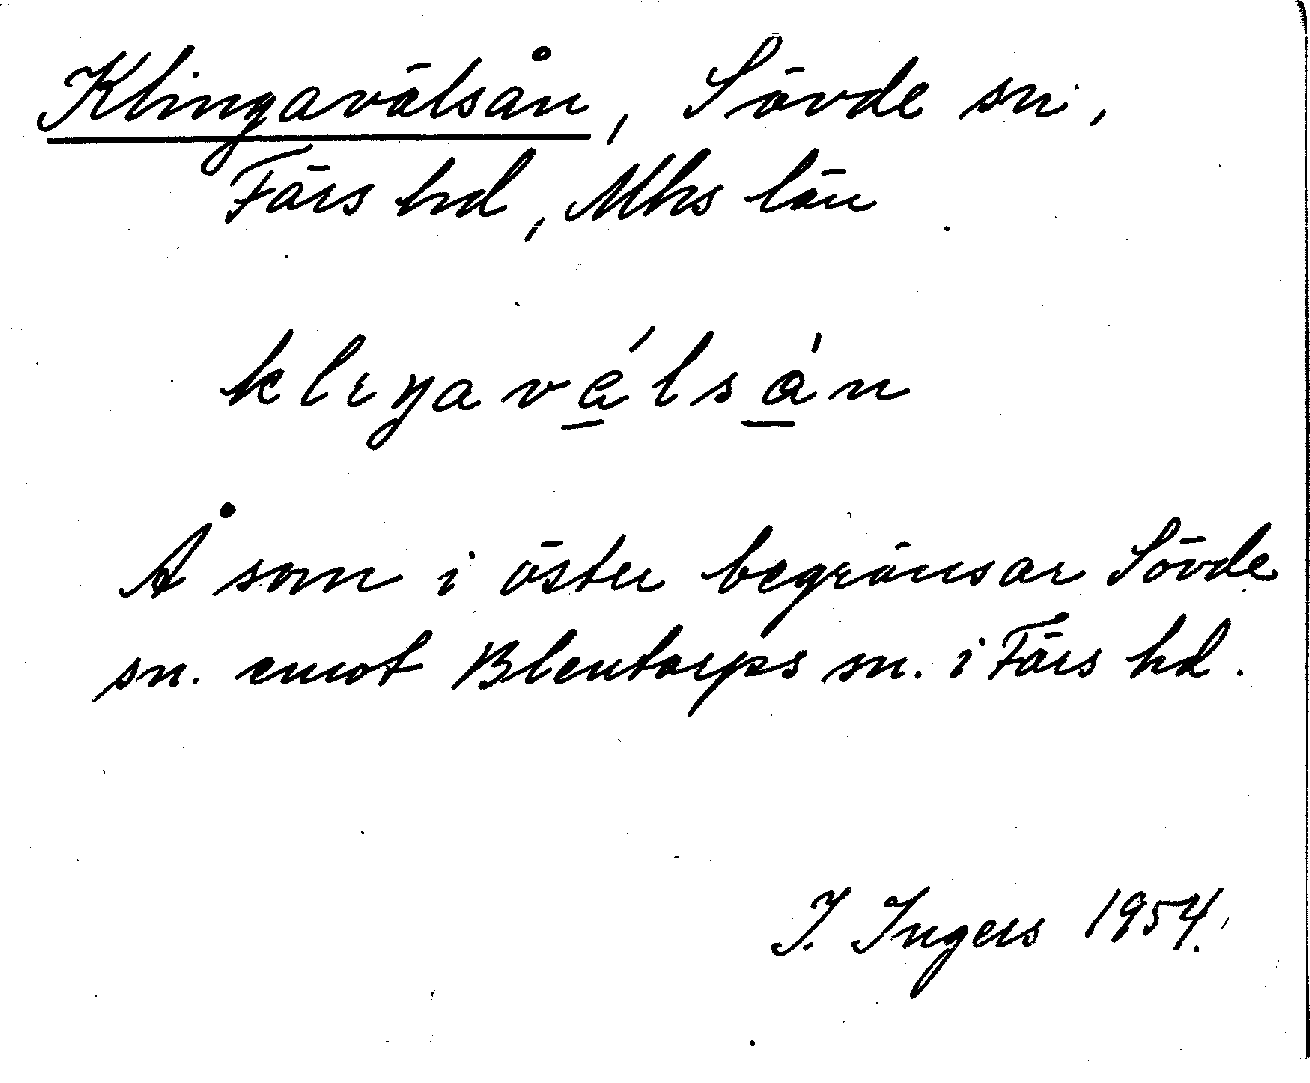 Klingavälsån, Sövde sn.,
Färs hd, Mhs län
klıŋavä́lsån
Å som i öster begränsar Sövde
sn. emot Blentarps sn. i Färs hd.
I. Ingers 1954.